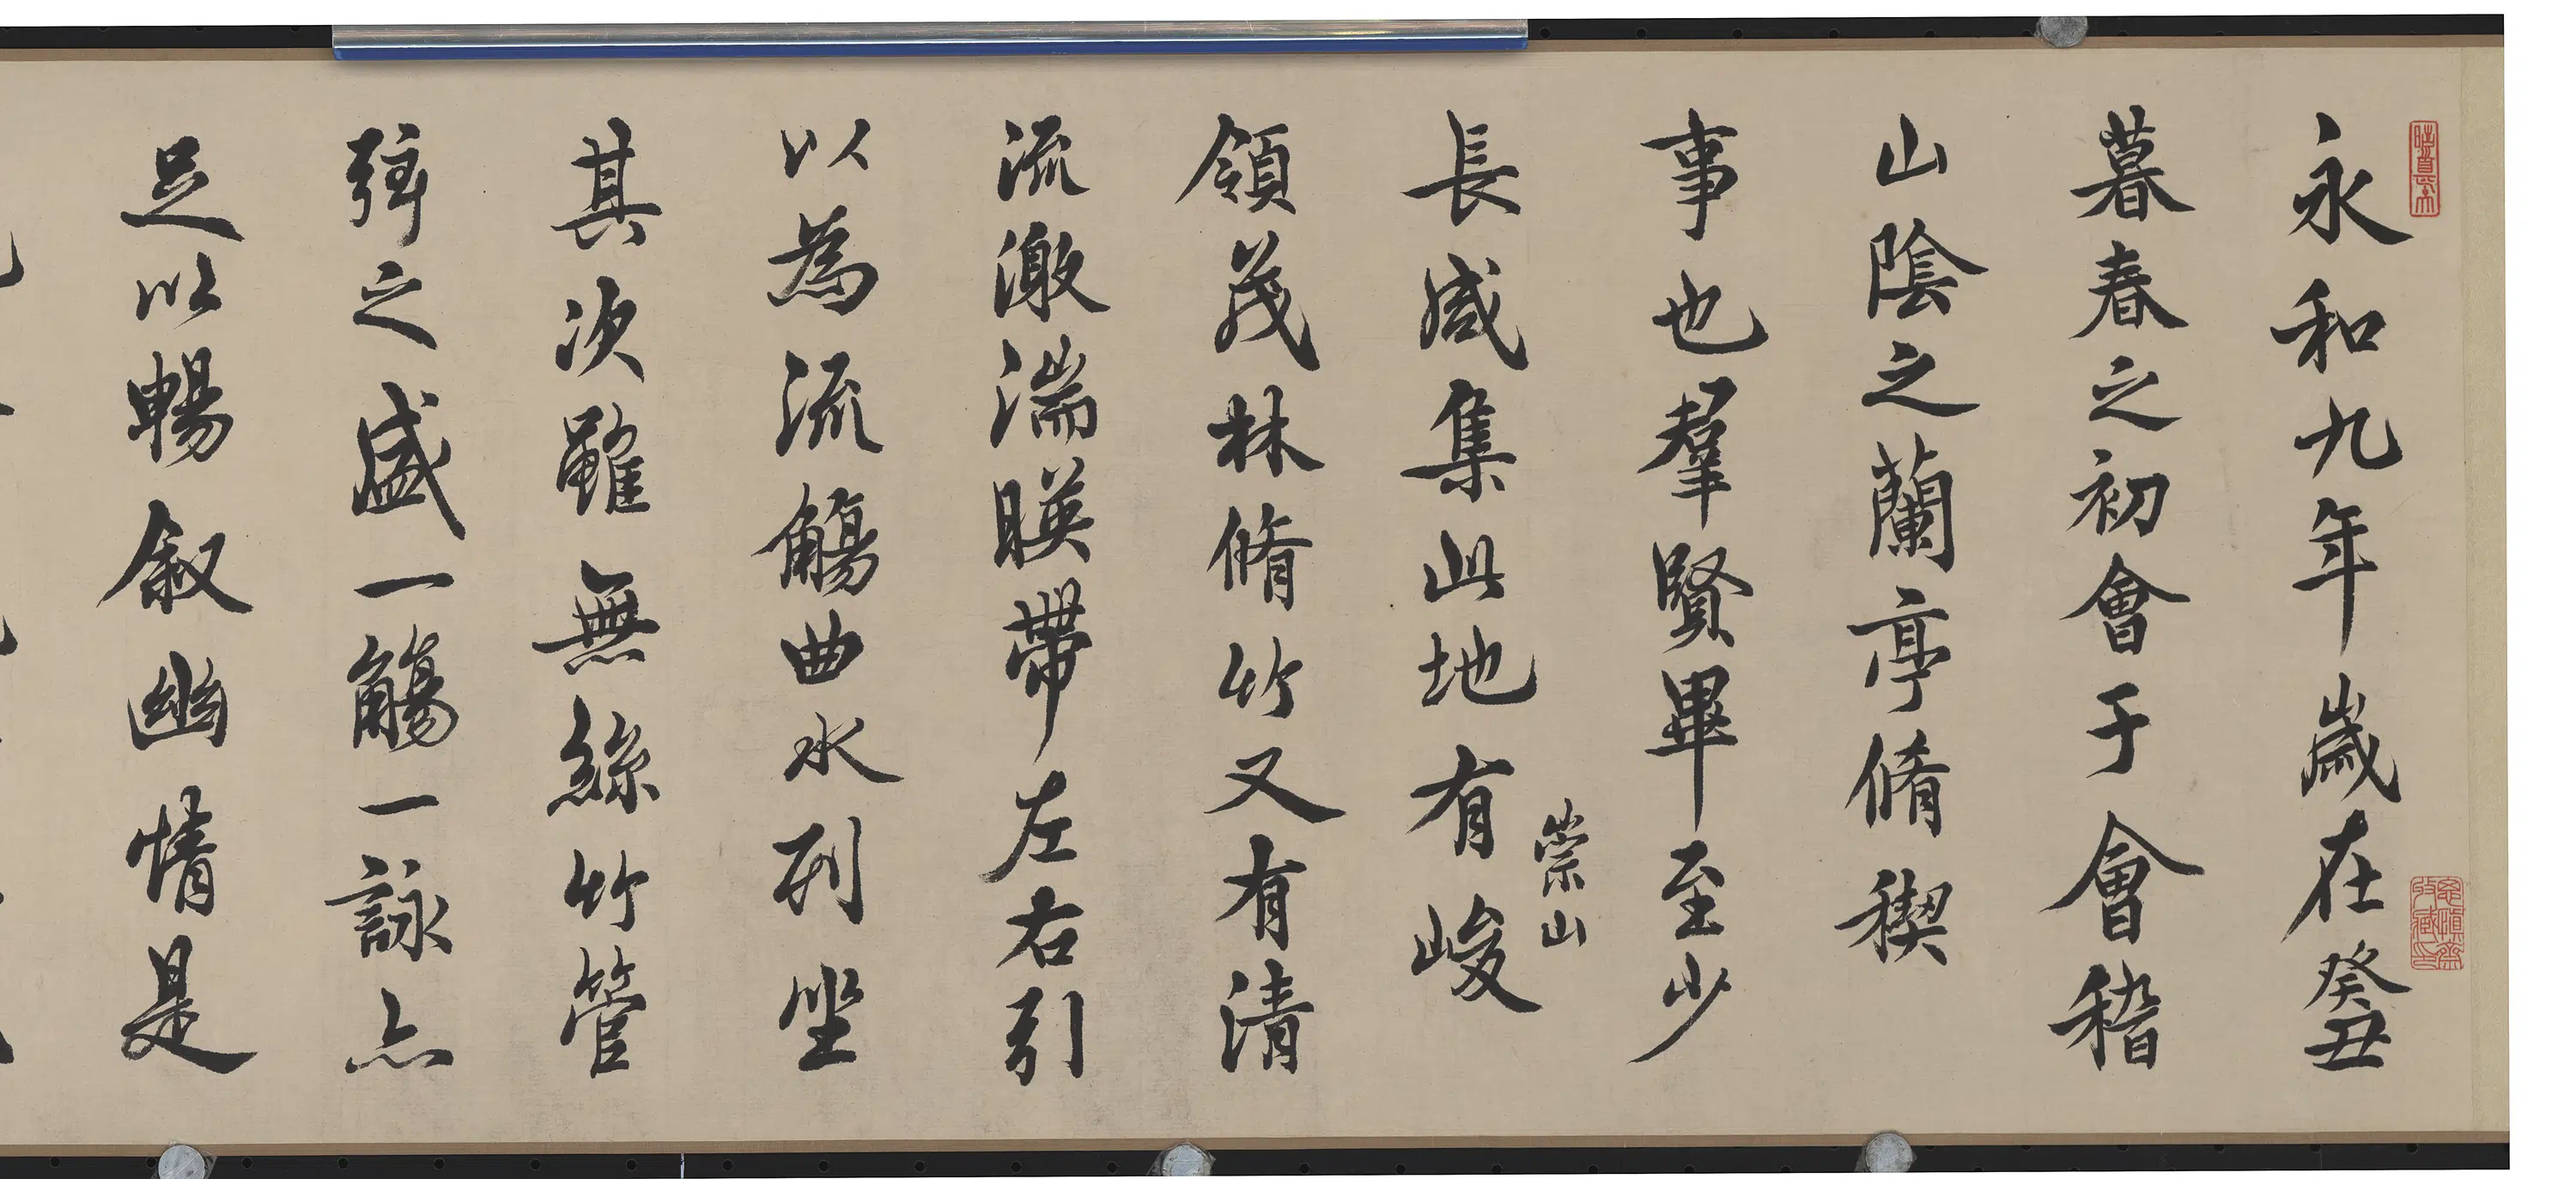 永和九年歲在癸丑
暮春之初會于會稽
山陰之蘭亭脩稧
事也羣賢畢至少
崇山
長咸集此地有峻
領茂林脩竹又有清
流激湍暎帶左右引
以為流觴曲水列坐
其次雖無絲竹管
弦之盛一觴一詠亦
足以暢叙幽情是